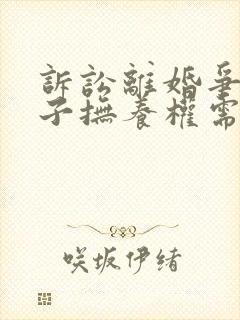 訴訟離婚爭
子撫養權需
咲坂伊緒